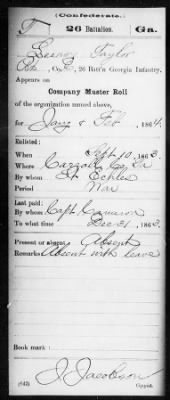 (Confederate.)
T 26 Battalion. Ga.
Leeroy Taylor
Pvt., Co. B, 26 Batt'n Georgia Infantry.
Appears on
Company Muster Roll
of the organization named above,
for Jany & Feb, 1864.
Enlisted:
When Sept 10, 1863.
Where Carroll Co Ga
By whom Lt Echles
Period War
Last paid:
By whom Capt Cameron
To what time Dec 31, 1863.
Present or absent Absent
Remarks: Absent with leave
Book mark:
J. Jacobson
(642) Copyist.